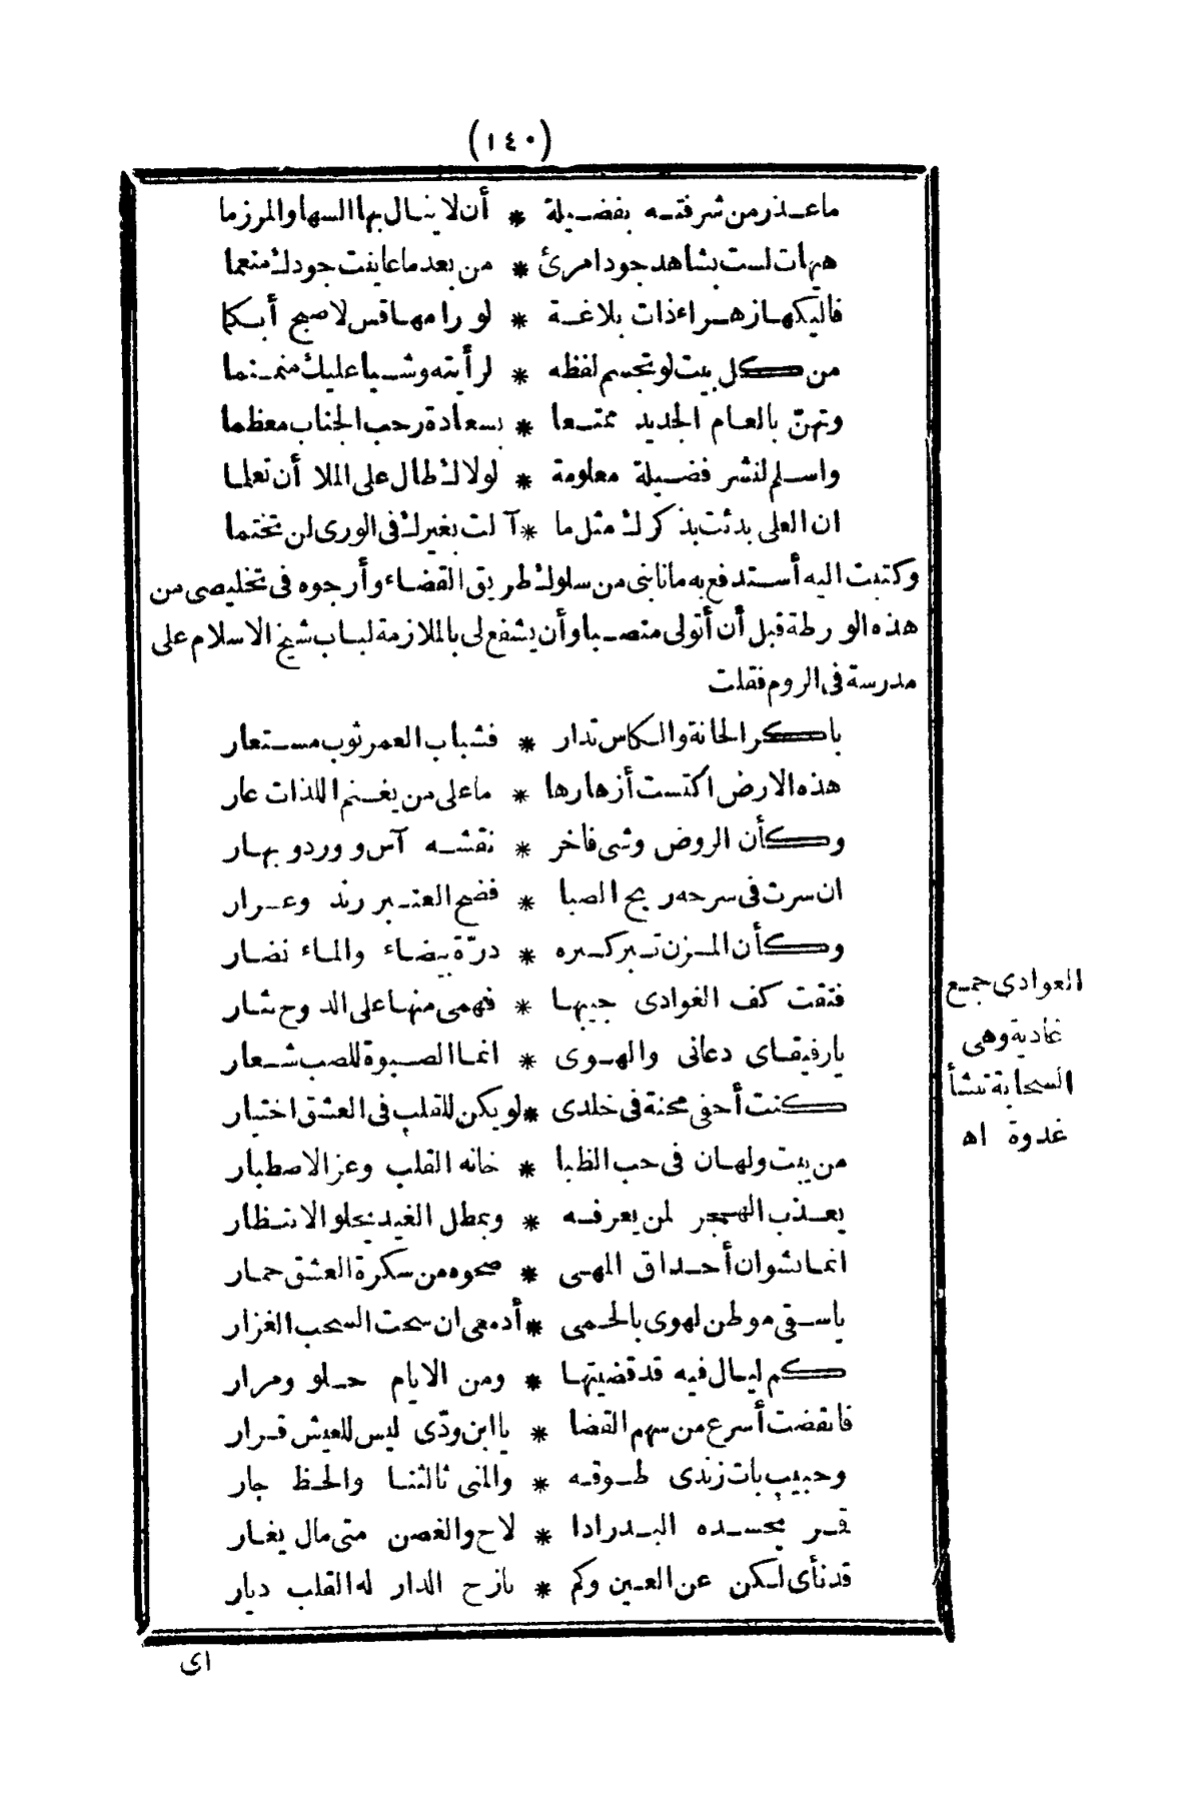 (١٤٠)
ما عذر من شرفته بفضيلة * أن لا ينال بها السها والمرزما
هيهات لست بشاهد جود امرئ * من بعد ما عاينت جودك منعما
فاليكها زهراء ذات بلاغة * لو رامها قس لاصبح أبكما
من كل بيت لو تجسم لفظه * لرأيته وشيا عليك منمنما
وتهنّ بالعام الجديد ممتعا * بسعادة رحب الجناب معظما
واسلم لنشر فضيلة معلومة * لولاك طال على الملا أن تعلما
ان العلى بدئت بذكرك مثل ما * آلت بغيرك فى الورى لن تختما
وكتبت اليه أستدفع به ما نابنى من سلوك طريق القضاء وأرجوه فى تخليصى من
هذه الورطة قبل أن أتولى منصبا وأن يشفع لى بالملازمة لباب شيخ الاسلام على
مدرسة فى الروم فقلت
باكر الحانة والكاس تدار * فشباب العمر ثوب مستعار
هذه الارض اكتست أزهارها * ما على من يغنم اللذات عار
وكأن الروض وشى فاخر * نقشه آس وورد وبهار
ان سرت فى سرحه ريح الصبا * فضح العنبر رند وعرار
وكأن المزن تبر كسره * درّة بيضاء والماء نضار
فتقت كف الغوادى جيبها * فهمى منها على الدوح نثار
يا رفيقاى دعانى والهوى * انما الصبوة للصب شعار
كنت أخفى محنة فى خلدى * لو يكن للقلب فى العشق اختيار
من يبت ولهان فى حب الظبا * خانه القلب وعز الاصطبار
يعذب الهجر لمن يعرفه * وبمطل الغيد يحلو الانتظار
انما نشوان أحداق المهى * صحوه من سكرة العشق خمار
يا سقى موطن لهوى بالحمى * أدمعى ان سحت السحب الغزار
كم ليال فيه قد قضيتها * ومن الايام حلو ومرار
فانقضت أسرع من سهم القضا * يا ابن ودّى ليس للعيش قرار
وحبيب بات زندى طوقه * والمنى ثالثنا والحظ جار
قمر يحسده البدر اذا * لاح والغصن متى مال يغار
قد نأى لكن عن العين وكم * نازح الدار له القلب ديار
العوادى جمع
غادية وهى
السحابة تنشأ
غدوة اه
اى